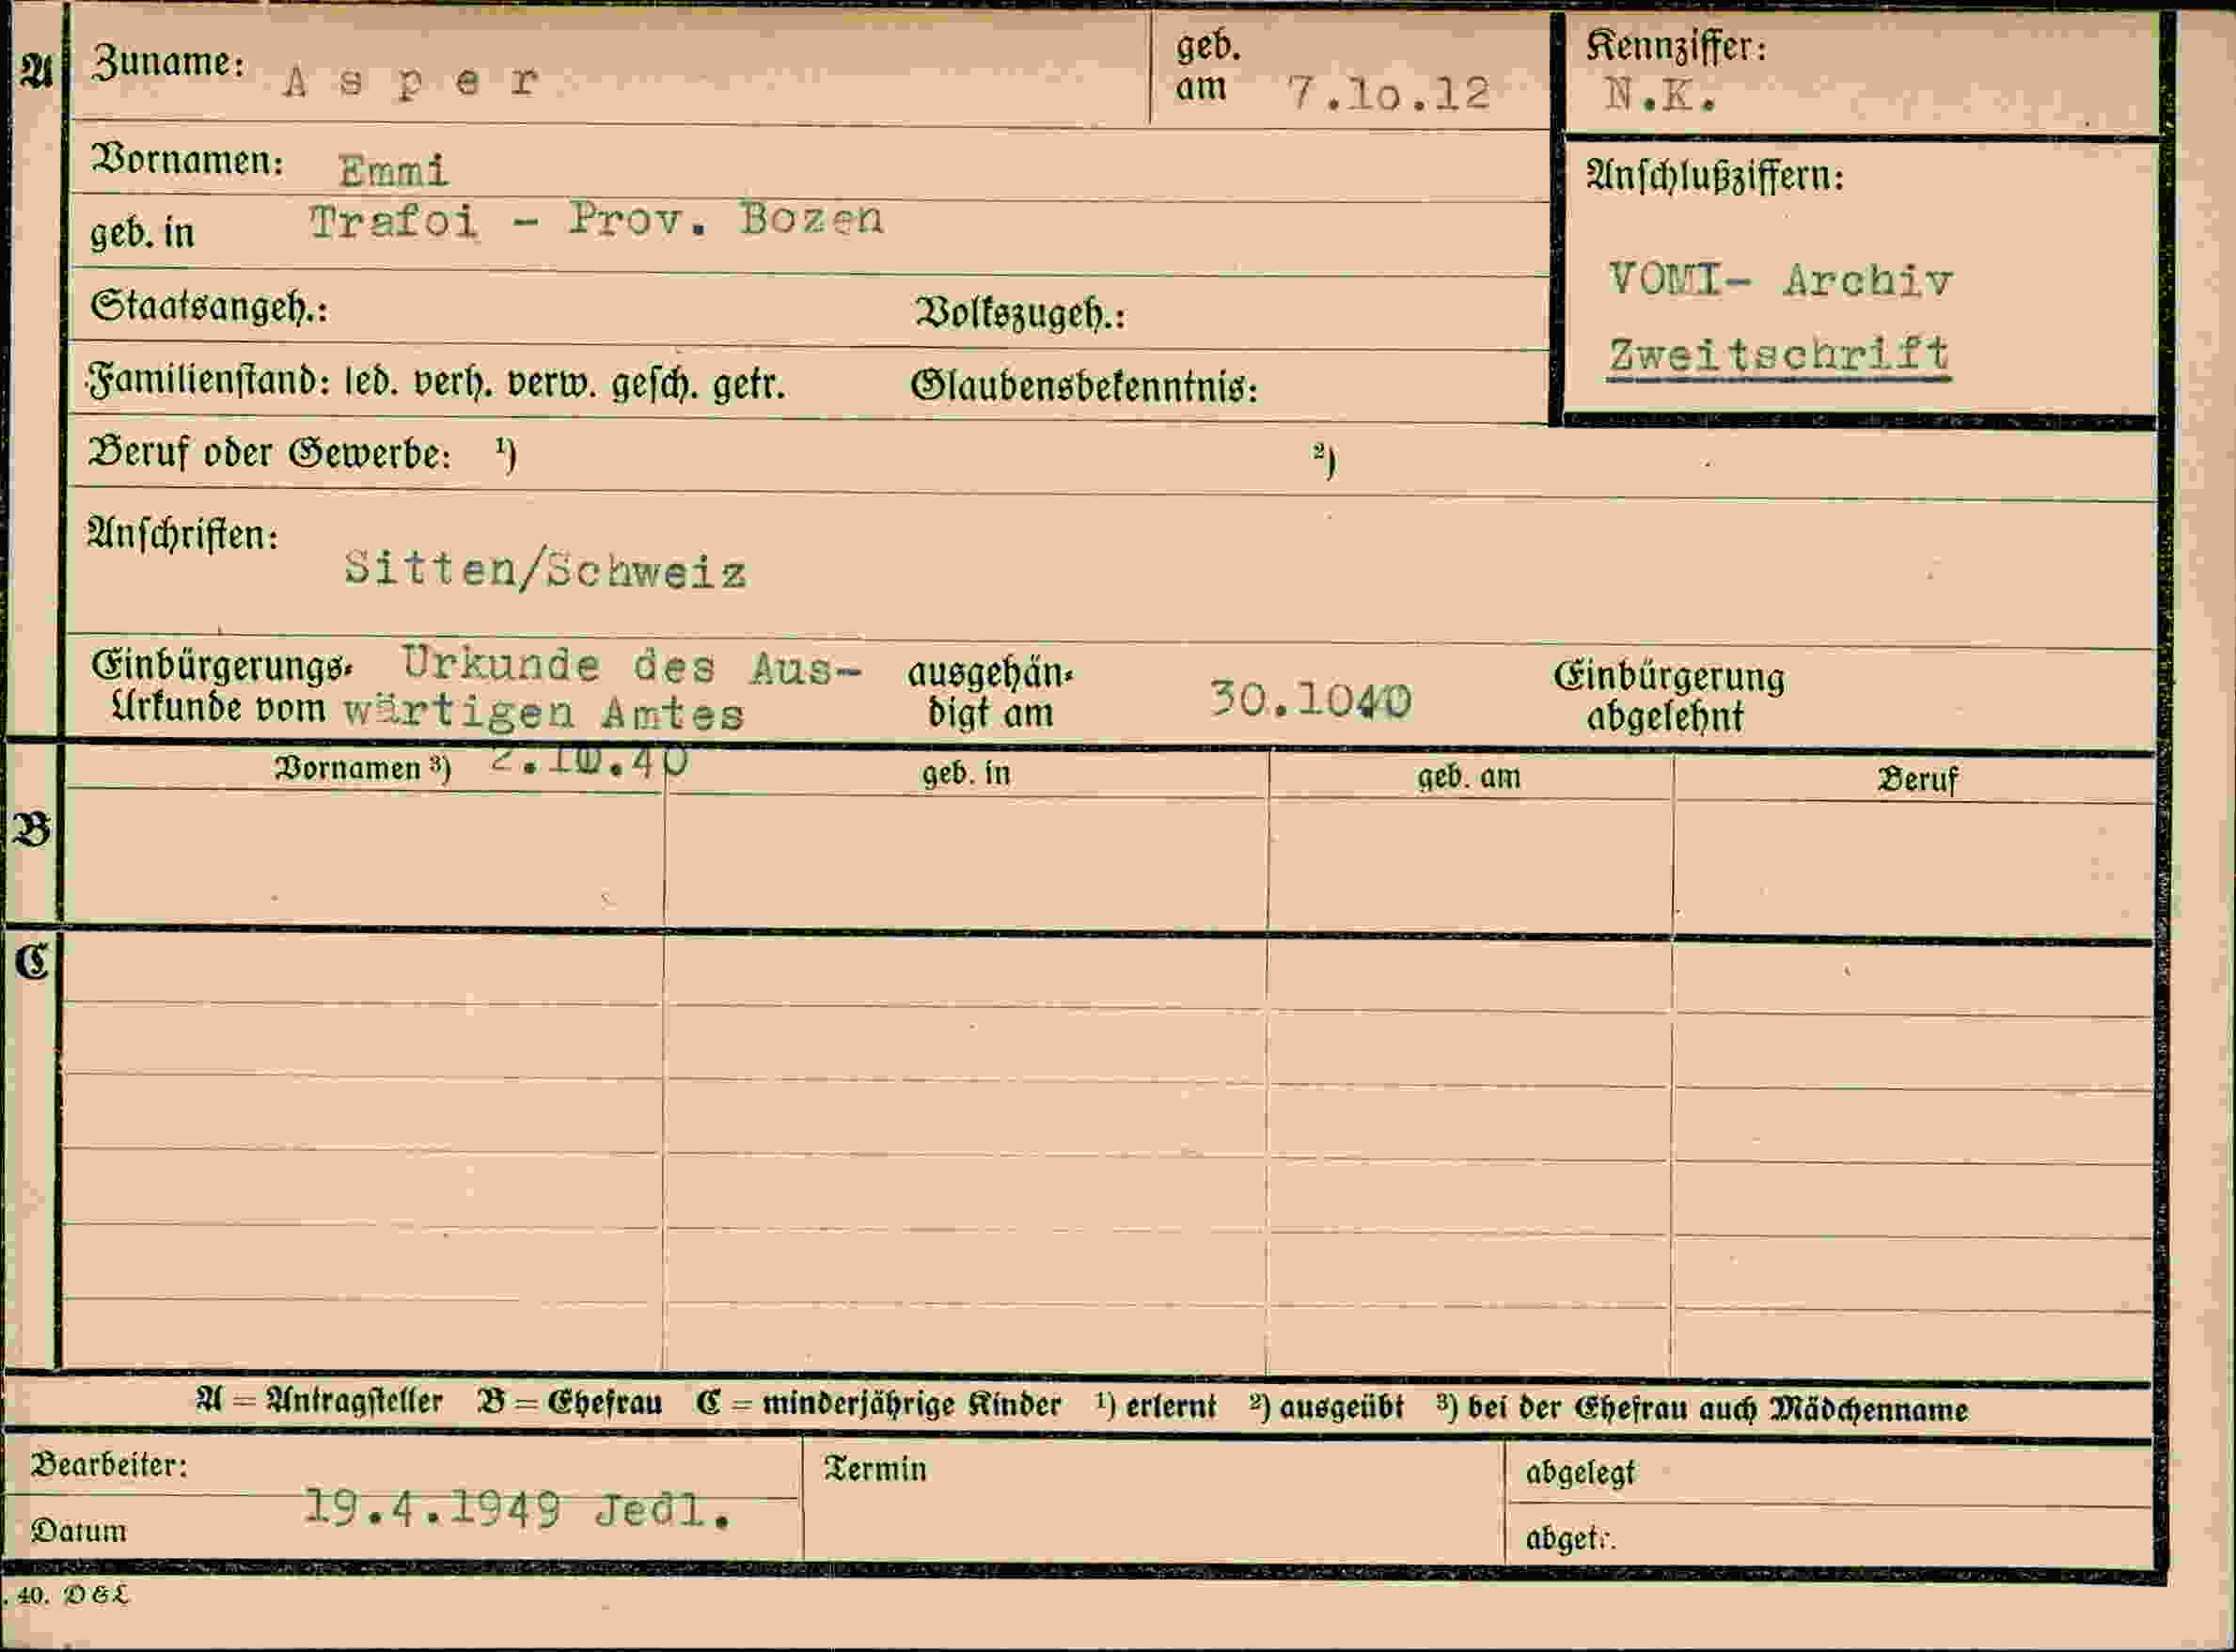 A Zuname: Asper geb. am 7.10.12 Kennziffer: N.K.
Vornamen: Emmi
geb. in Trafoi - Prov. Bozen
Anschlußziffern:
VOMI- Archiv
Zweitschrift
Staatsangeh.: Volkszugeh.:
Familienstand: led. verh. verw. gesch. getr. Glaubensbekenntnis:
Beruf oder Gewerbe: ¹) ²)
Anschriften:
Sitten/Schweiz
Einbürgerungs- Urkunde des Aus- ausgehän- Einbürgerung
Urkunde vom wärtigen Amtes digt am 30.1040 abgelehnt
Vornamen ³) 2.10.40 geb. in geb. am Beruf
B
C
A = Antragsteller B = Ehefrau C = minderjährige Kinder ¹) erlernt ²) ausgeübt ³) bei der Ehefrau auch Mädchenname
Bearbeiter: Termin abgelegt
19.4.1949 Jedl.
Datum abgetr.
. 40. D&L